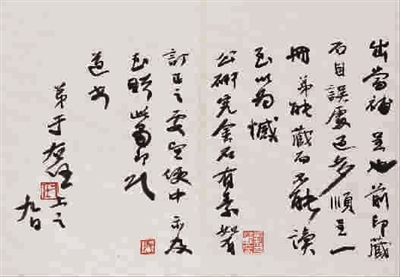 出當補呈也前印藏
石目誤處多順呈一
冊弟能藏而不能讀
至以為憾
公研究金石有素如有
訂正之處望便中示及
至盼此即頌
道安
弟于右任上
九日